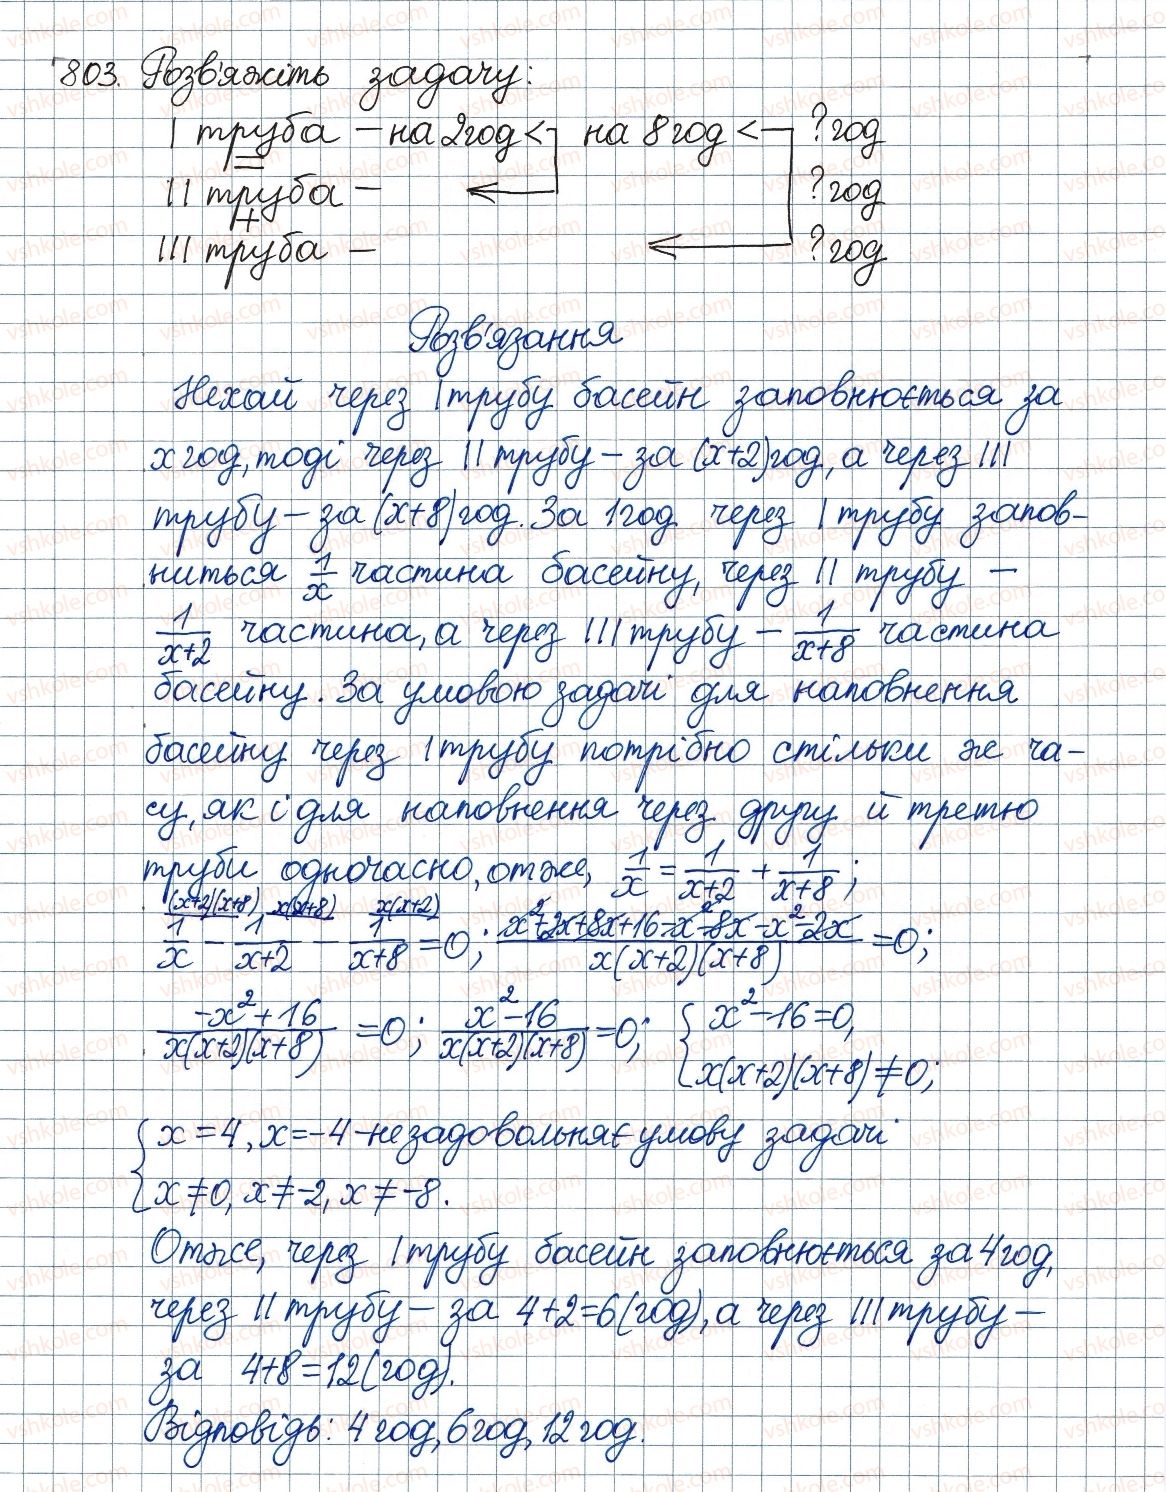 803. Розв'яжіть задачу:
I труба – на 2год < на 8год < ? год
=
II труба – ? год
+
III труба – ? год
Розв'язання
Нехай через I трубу басейн заповнюється за
x год, тоді через II трубу – за (x+2) год, а через III
трубу – за (x+8) год. За 1 год через I трубу запов-
ниться 1/x частина басейну, через II трубу –
1/(x+2) частина, а через III трубу – 1/(x+8) частина
басейну. За умовою задачі для наповнення
басейну через I трубу потрібно стільки же ча-
су, як і для наповнення через другу й третю
труби одночасно, отже, 1/x = 1/(x+2) + 1/(x+8);
(x+2)(x+8) x(x+8) x(x+2)
1/x – 1/(x+2) – 1/(x+8) = 0; (x²+2x+8x+16–x²–8x–x²–2x)/(x(x+2)(x+8)) = 0;
(–x²+16)/(x(x+2)(x+8)) = 0; (x²–16)/(x(x+2)(x+8)) = 0; { x²–16=0,
x(x+2)(x+8)≠0;
{ x=4, x=–4 – не задовольняє умову задачі
x≠0, x≠–2, x≠–8.
Отже, через I трубу басейн заповнюється за 4 год,
через II трубу – за 4+2=6(год), а через III трубу –
за 4+8=12(год).
Відповідь: 4 год, 6 год, 12 год.